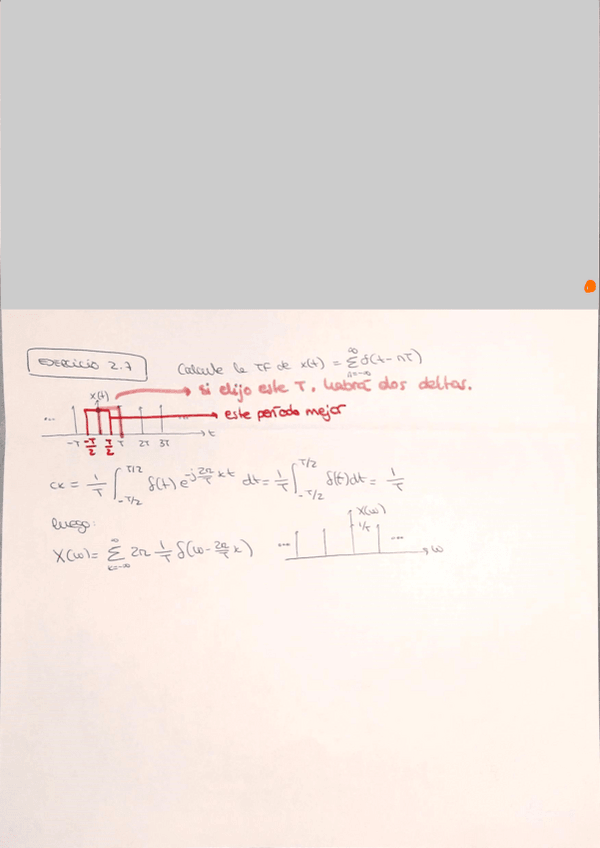 EJERCICIO 2.7
Calcule la TF de x(t) = ∞Σn=-∞ δ(t - nT)
x(t)
si elijo este T, habrá dos deltas.
este período mejor
... ...
-T -T/2 T/2 T 2T 3T t
ck = 1/T ∫_{-T/2}^{T/2} δ(t) e^{-j 2π/T kt} dt = 1/T ∫_{-T/2}^{T/2} δ(t) dt = 1/T
luego:
X(ω) = Σ_{k=-∞}^{∞} 2π 1/T δ(ω - 2π/T k)
X(ω)
1/T
... ...
ω